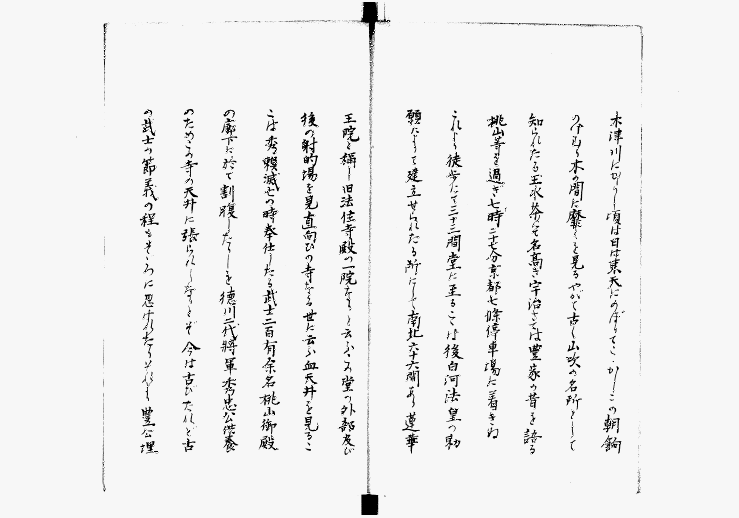 木津川にかゝりし頃は日は東天にのぼりてこゝかしこの朝餉
のけむり木の間に靡くを見るやがて古し山吹の名所として
知られたる玉水茶に名高き宇治さては豊家の昔を語る
桃山等を過ぎ七時二十七分京都七條停車場に着きぬ
これより徒歩にて三十三間堂に至るこは後白河法皇の勅
願によりて建立せられたる所にして南北六十六間あり蓮華
王院と稱し旧法住寺殿の一院なりと云ふこの堂の外部及び
後の射的場を見直向ひの寺なる世に云ふ血天井を見るこ
こは秀頼滅亡の時奉仕したる武士二百有余名桃山御殿
の廊下に於て割腹したりしを徳川二代將軍秀忠公供養
のためこの寺の天井に張られしなりとぞ今は古びたれど古
の武士の節義の程もそゞろに忍ばれたり 豊公埋